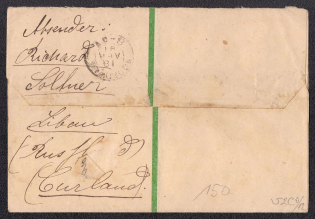 Absender:
Richard
Soltner
Libau
(Russld)
(Curland).
150